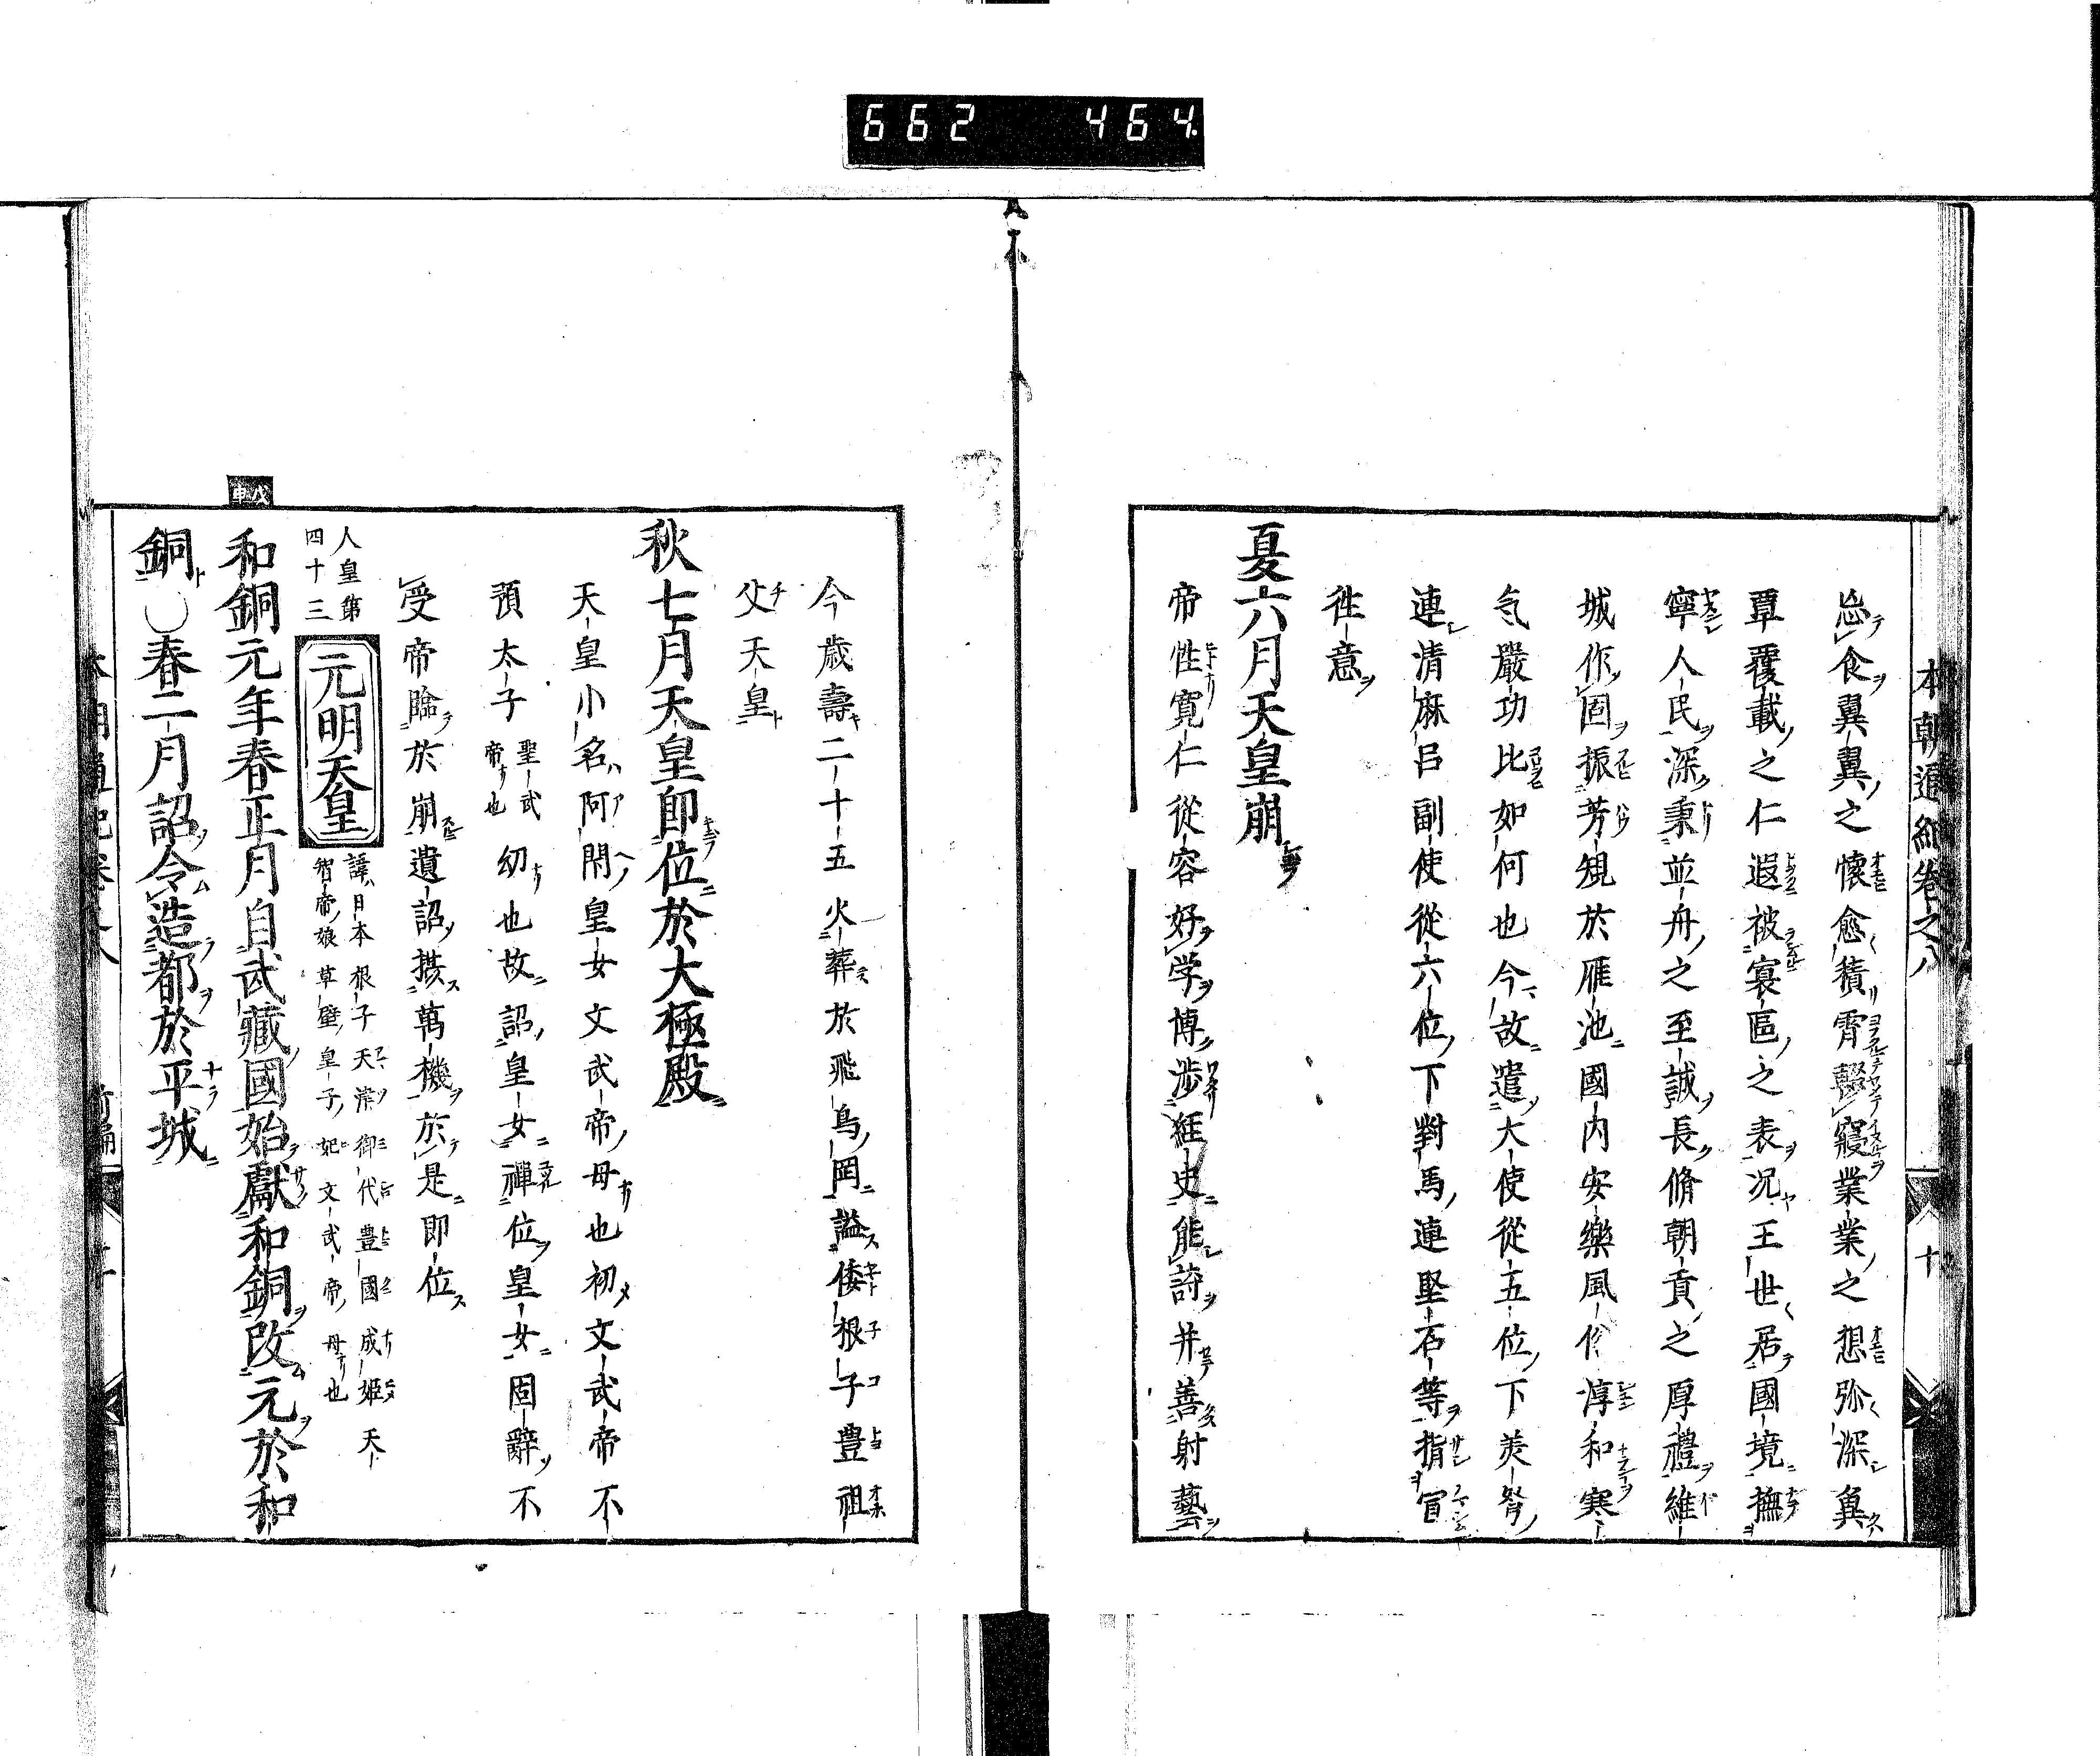 662 464.
本朝通紀卷之八 十
忘食翼翼之懷愈積霄興寢業業之想弥深冀
覃覆載之仁遐被寰區之表况王世居國境撫
寧人民深秉並舟之至誠長脩朝貢之厚禮維
城作固振芳規於雁池國内安樂風俗淳和寒
气嚴切比如何也今故遣大使從五位下美努
連清麻呂副使從六位下對馬連堅石等指宣
徃意
夏六月天皇崩
帝性寬仁從容好学博渉經史能詩并善射藝
今歳壽二十五火葬於飛鳥岡謚倭根子豊祖
父天皇
秋七月天皇即位於大極殿
天皇小名阿閇皇女文武帝母也初文武帝不
預太子聖武帝也幼也故詔皇女禪位皇女固辭不
受帝臨於崩遺詔摂萬機於是即位
人皇第四十三
元明天皇
諱日本根子天津御代豊國成姫天
智帝娘草壁皇子妃文武帝母也
戊申
和銅元年春正月自武藏國始獻和銅改元於和
銅〇春二月詔令造都於平城